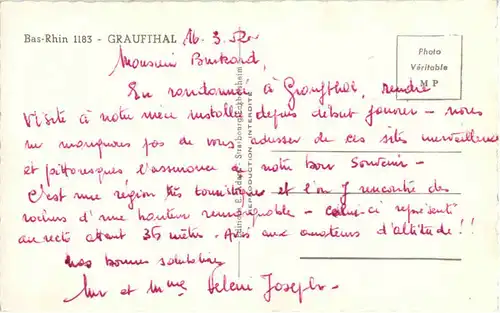 Bas-Rhin 1183 - GRAUFTHAL 16.3.52
Photo
Véritable
M P
Monsieur Burkard,
En randonnée à Graufthal, rendre
visite à notre mère installée depuis début janvier - nous
ne manquons pas de vous adresser de ces sites merveilleux
et pittoresques l'assurance de notre bon souvenir -
C'est une région très touristique et l'on y rencontre des
rochers d'une hauteur remarquable - celui-ci représenté
au recto atteint 35 mètres. Avis aux amateurs d'altitude !!
nos bonnes salutations
Mr et Mme Joseph -
REPRODUCTION INTERDITE